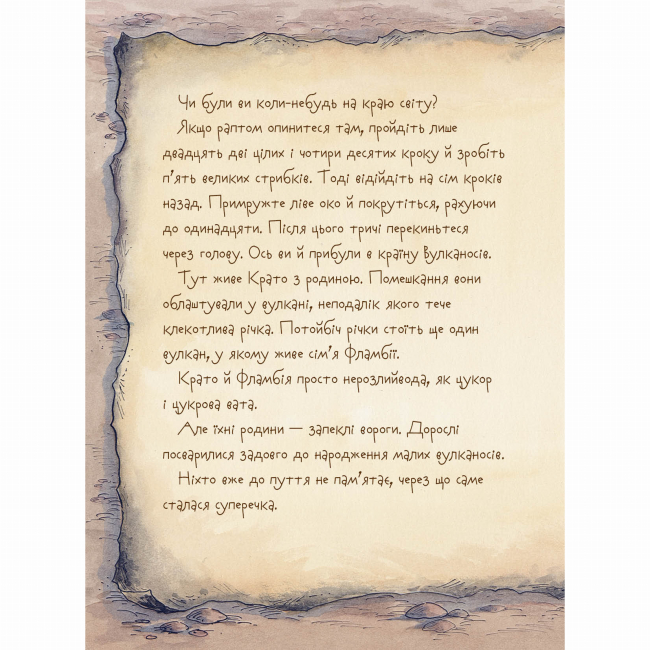 Чи були ви коли-небудь на краю світу?
Якщо раптом опинитеся там, пройдіть лише
двадцять дві цілих і чотири десятих кроку й зробіть
п'ять великих стрибків. Тоді відійдіть на сім кроків
назад. Примружте ліве око й покрутіться, рахуючи
до одинадцяти. Після цього тричі перекиньтеся
через голову. Ось ви й прибули в країну Вулканосів.
Тут живе Крато з родиною. Помешкання вони
облаштували у вулкані, неподалік якого тече
клекотлива річка. Потойбіч річки стоїть ще один
вулкан, у якому живе сім'я Фламбії.
Крато й Фламбія просто нерозлийвода, як цукор
і цукрова вата.
Але їхні родини — запеклі вороги. Дорослі
посварилися задовго до народження малих вулканосів.
Ніхто вже до пуття не пам'ятає, через що саме
сталася суперечка.